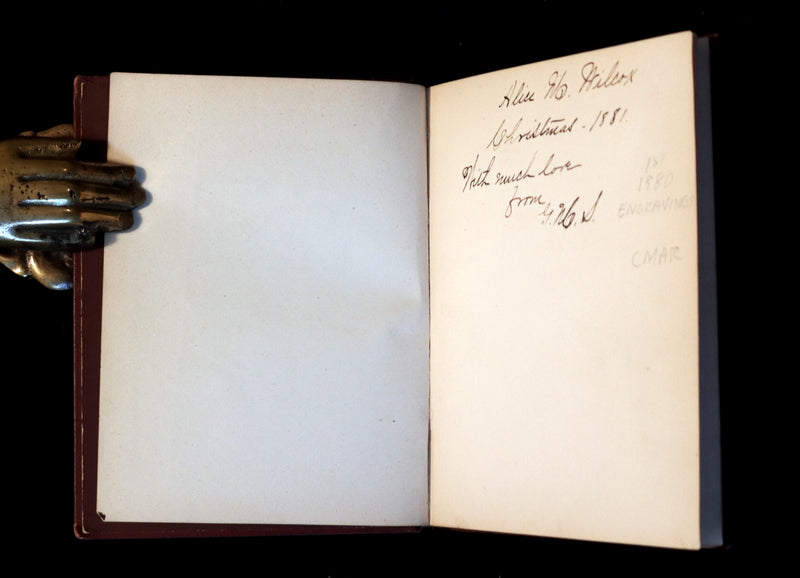 Alice M. Wilcox
Christmas - 1881.
With much love
from
G. M. S.
1ST
1880
ENGRAVINGS
CMAR